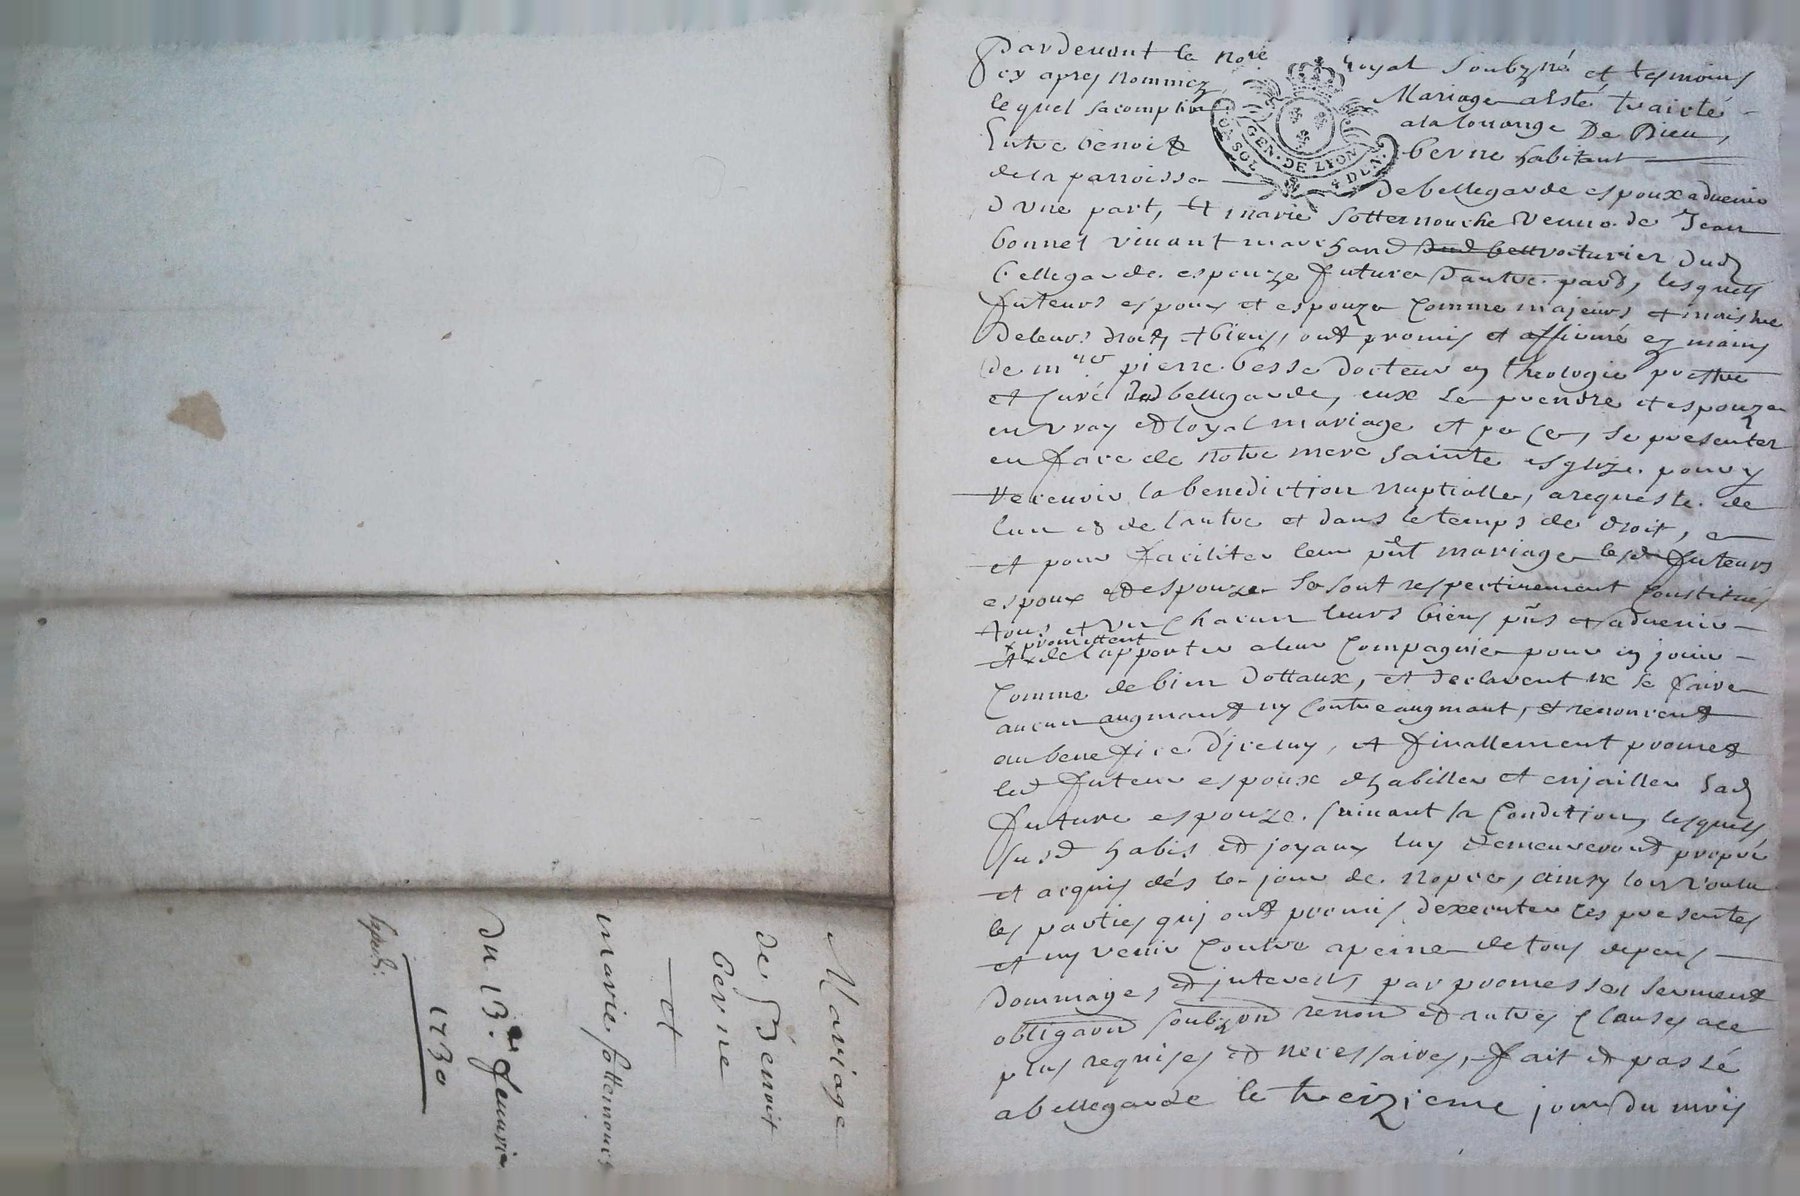 Mariage
de Benoit
berne
et
marie sottemouche
du 13e feuurier
1730
Expedi:
Pardeuant le nore royal soubzné et tesmoins
cy apres nommez, Mariage a esté traicté
lequel sacomplira a la louange De Dieu,
Entre benoit berne habitant
de la parroisse de bellegarde espoux aduenir
d'une part, Et marie sottemouche veuue de Jean
bonnet viuant marchand voiturier dud
bellegarde espouze future d'autre part, lesquels
futeurs espoux et espouze comme majeurs et maistre
de leurs droits et biens, ont promis et affirmé ez mains
de mre pierre besse docteur en theologie prestre
et curé dud bellegarde, eux se prendre et espouzer
en vray et loyal mariage et po ce, se presenter
en face de notre mere sainte esglize pour y
receuoir la benediction nuptialle, a requeste de
l'un et de l'autre et dans le temps de droit,
et pour faciliter leur pnt mariage lesd futeurs
espoux et espouze se sont respectiuement constitués
tous et un chacun leurs biens pnts et aduenir
et x de l'apporter a leur compagnie pour en jouir
x promettent
comme de bien dottaux, et declarent ne se faire
aucun augmant ny contre augmant, et renoncent
au benefice d'jceluy, et finallement promet
led futeur espoux d'habiller et enjailler sad
future espouze suiuant sa condition, lesquels
susd habis et joyaux luy demeureront propre
et acquis dés le jour de nopce, ainsy l'ont voulu
les parties quj ont promis d'executer ces presentes
et ny venir contre a peine de tous depens
dommages et jnterests, par promesses serment
obligaon soubzon renon et autres clauses a ce
plus requises et necessaires, fait et passé
a bellegarde le treizieme jour du mois
GEN. DE LYON